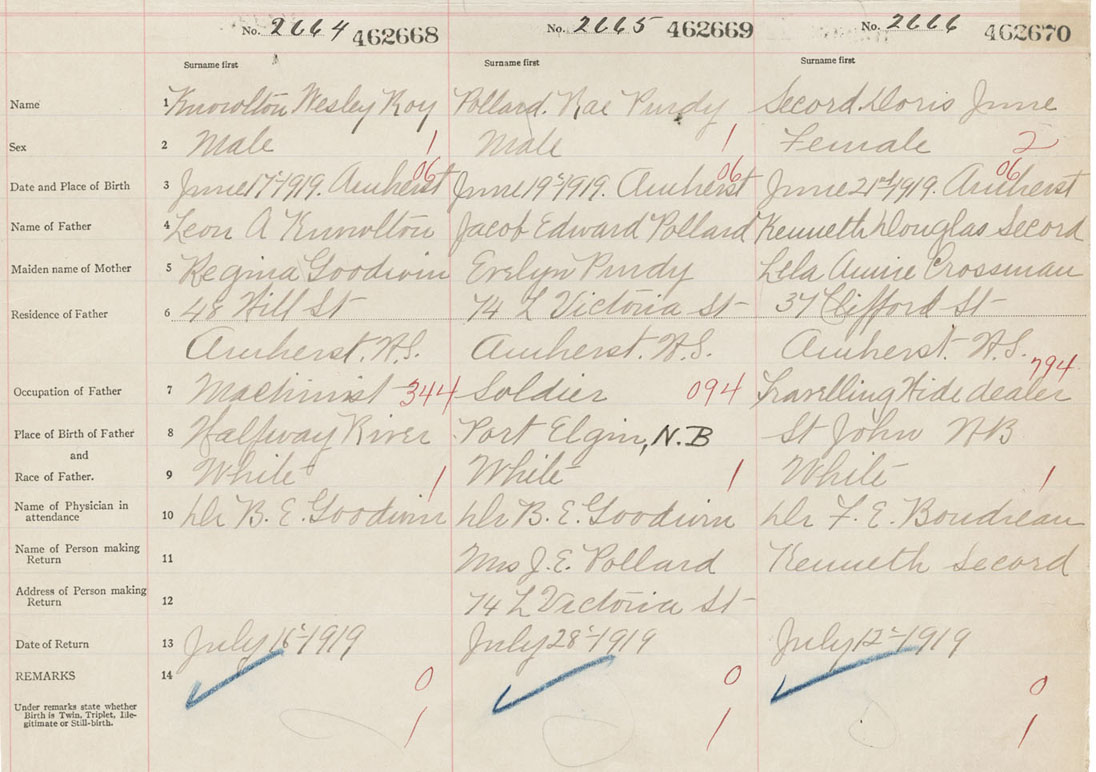 No. 2664 462668 No. 2665 462669 No. 2666 462670
Surname first Surname first Surname first
Name 1 Knowlton Wesley Roy Pollard. Rae Purdy Secord. Doris June
Sex 2 Male 1 Male 1 Female 2
06 06 06
Date and Place of Birth 3 June 17th 1919. Amherst June 19th 1919. Amherst June 21st 1919. Amherst
Name of Father 4 Leon A Knowlton Jacob Edward Pollard Kenneth Douglas Secord
Maiden name of Mother 5 Regina Goodwin Evelyn Purdy Lela Annie Crossman
Residence of Father 6 48 Hill St 74 L Victoria St 37 Clifford St
Amherst. N.S. Amherst. N.S. Amherst. N.S.
794
Occupation of Father 7 Machinist 344 Soldier 094 Travelling Hide dealer
Place of Birth of Father 8 Halfway River Port Elgin, N.B St John NB
and
Race of Father. 9 White 1 White 1 White 1
Name of Physician in
attendance 10 Dr B. E. Goodwin Dr B. E. Goodwin Dr F. E. Boudreau
Name of Person making
Return 11 Mrs J. E. Pollard Kenneth Secord
Address of Person making
Return 12 74 L Victoria St
Date of Return 13 July 16-1919 July 28-1919 July 12-1919
REMARKS 14 0 0 0
Under remarks state whether
Birth is Twin, Triplet, Ille-
gitimate or Still-birth. 1 1 1